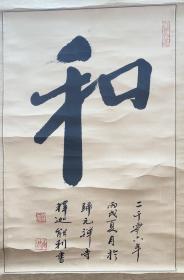 和
二千零六年
丙戌夏月於
歸元禪寺
釋迦能利書